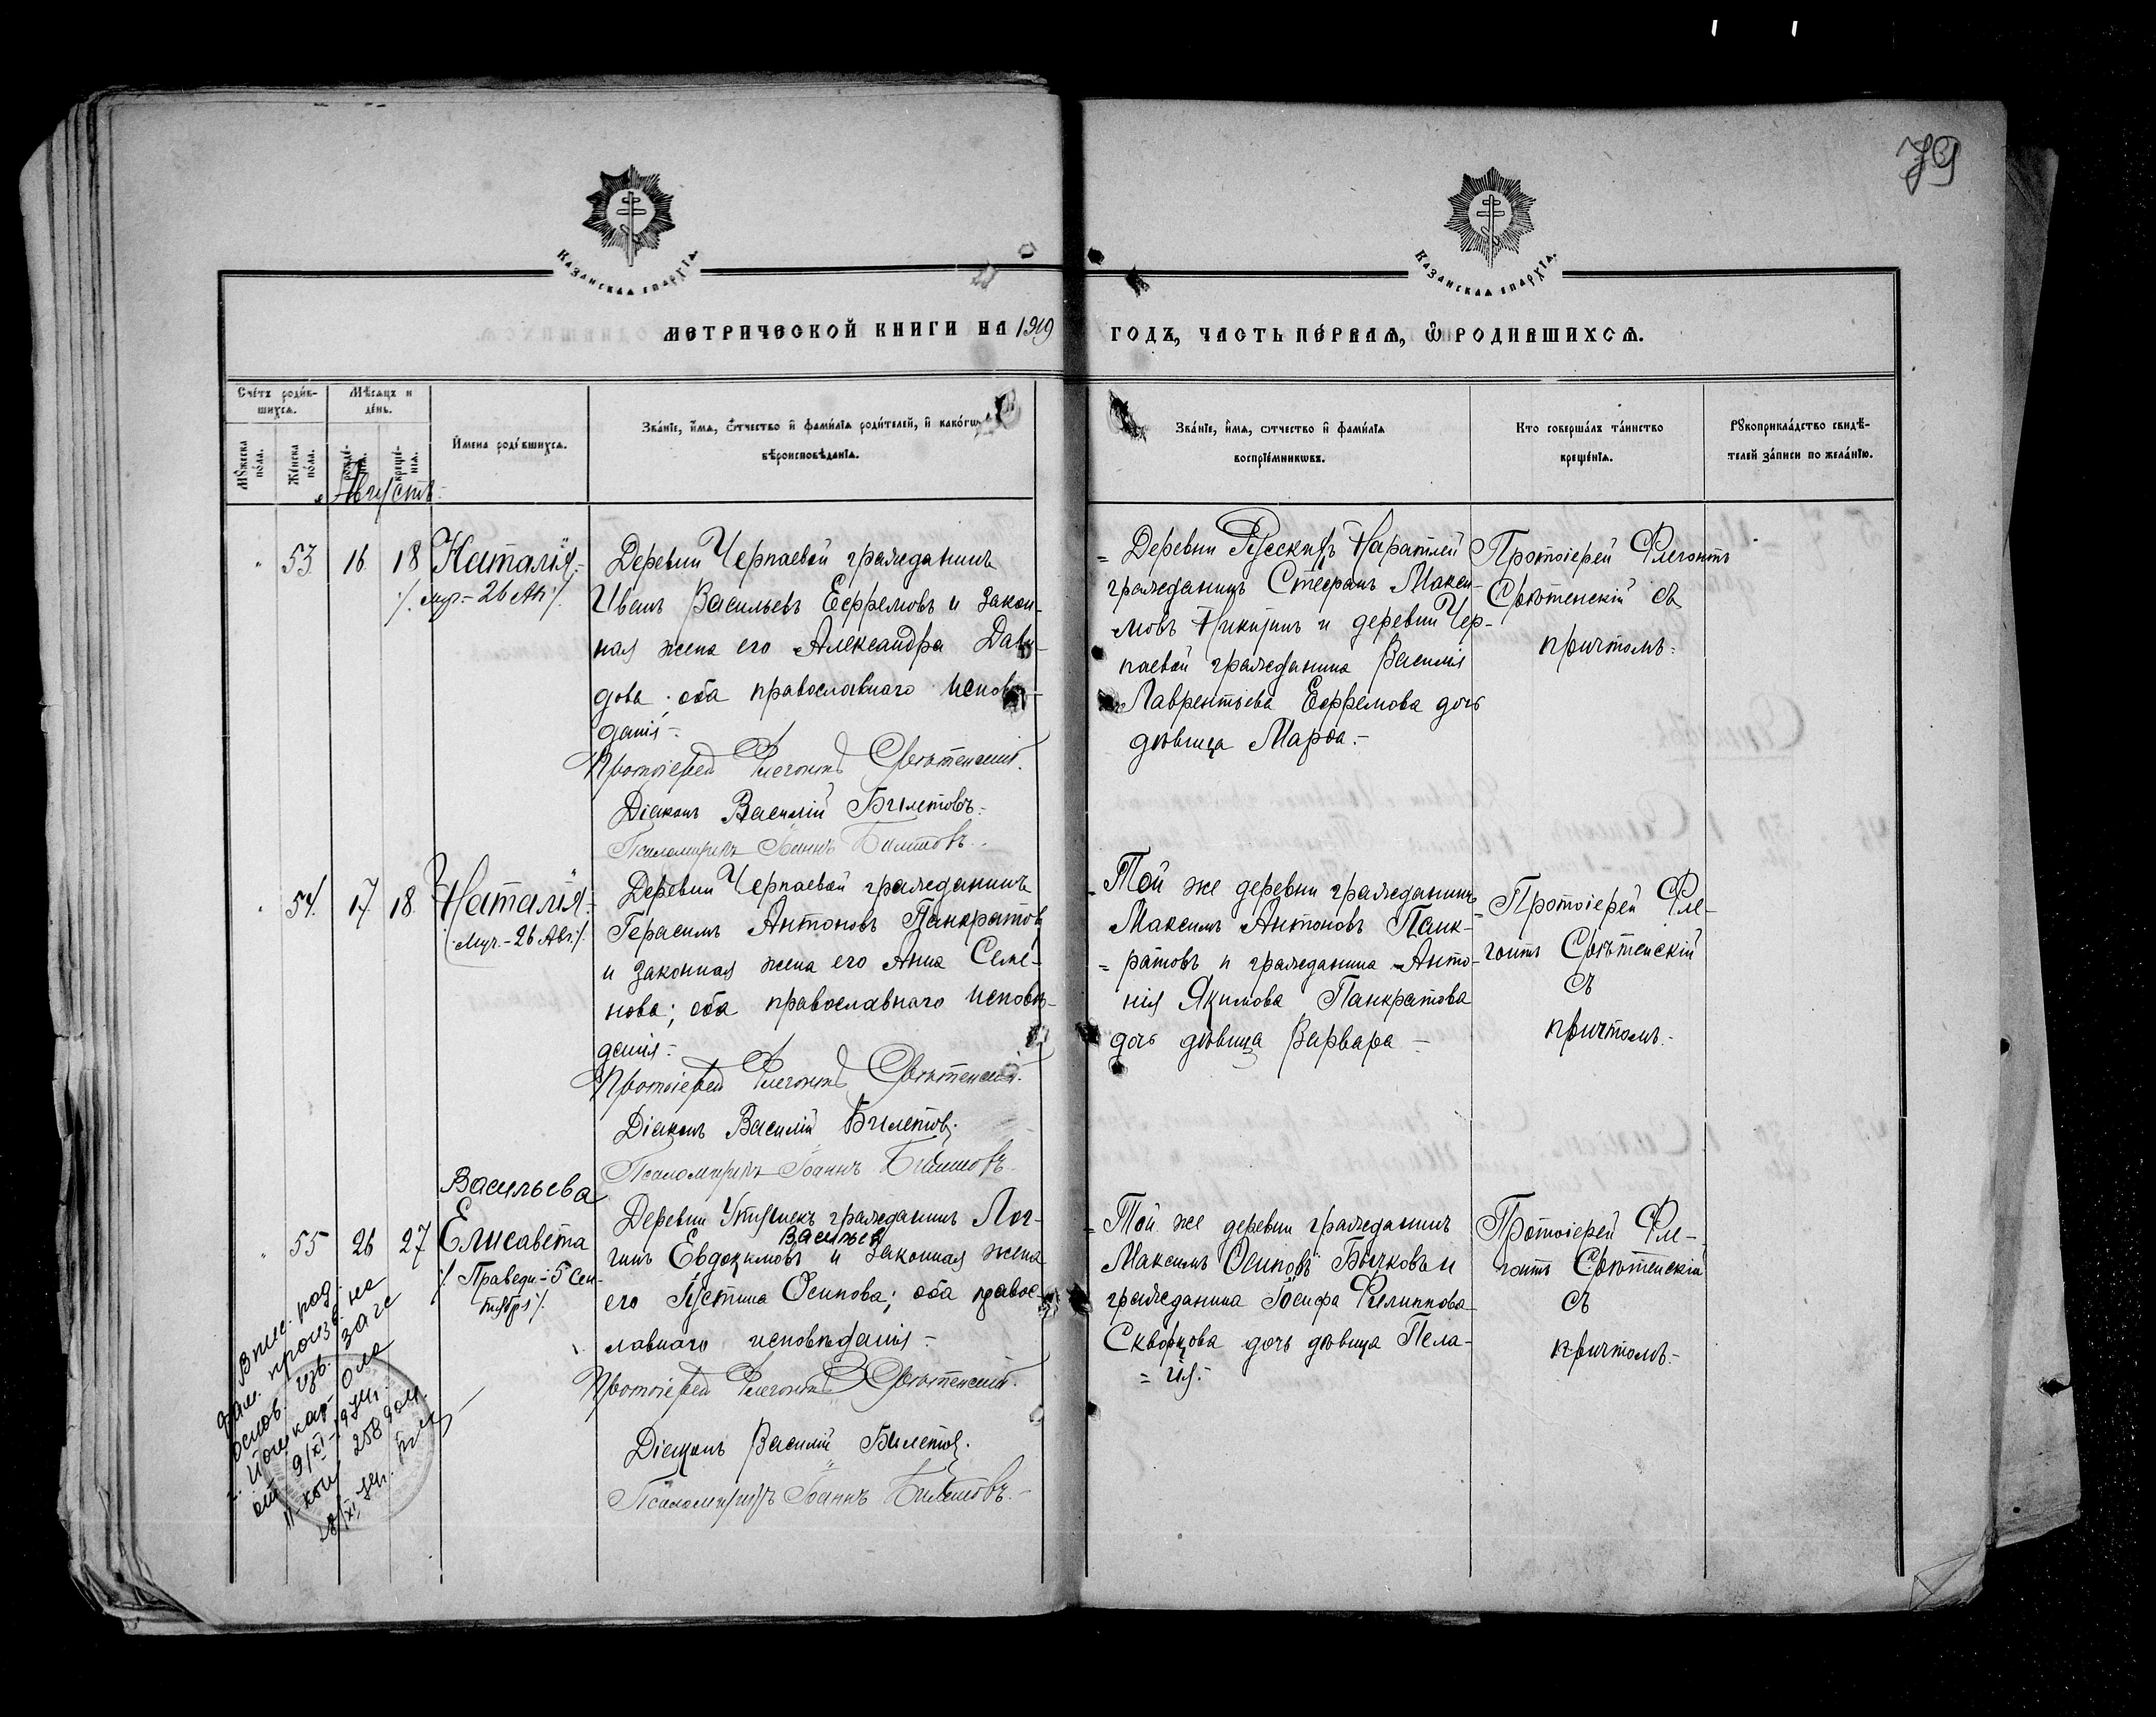 79
Казанская епархїа.
Казанская епархїа.
МЕТРИЧЕСКОЙ КНИГИ НА 1919
ГОДЪ, ЧАСТЬ ПЕ́РВАѦ, Ѽ РОДИВШИХСѦ.
Счéтъ родѝв-
шихсѧ.
Мѣ́сѧцъ и
дéнь.
Мꙋ́жеска пóла.
Жéнска пóла.
рождé-
нїѧ.
крещé-
нїѧ.
И҆мена роди́вшихсѧ.
Звáнїе, и҆́мѧ, ѻ҆́тчество и҆ фами́лїѧ роди́телей, и҆ какóгѡ
вѣроисповѣ́данїѧ.
Звáнїе, и҆́мѧ, ѻ҆́тчество и҆ фами́лїѧ
воспрїéмникѡвъ.
Кто совершáлъ тáинство
крещéнїѧ.
Рꙋкоприклáдство свидѣ́-
телей зáписи по желáнїю.
Августъ
53. 16. 18 Наталія
/. муч.- 26 Авг /.
Деревни Черпаевой гражданинъ
Иванъ Васильевъ Ефремовъ и закон-
ная жена его Александра Давы-
дова; оба православнаго исповѣ-
данія.-
Протоіерей Флегонтъ Срѣтенскій.
Діаконъ Василій Билетовъ.-
Псаломщикъ Іоаннъ Билетовъ.
= Деревни Русскихъ Наратлей
гражданинъ Стефанъ Макси-
мовъ Никитинъ и деревни Чер-
паевой гражданина Василія
Лаврентьева Ефремова дочь
дѣвица Марѳа.-
Протоіерей Флегонтъ
Срѣтенскій съ
причтомъ.
54. 17 18. Наталія.
/. Муч.- 26 Авг. /.
Деревни Черпаевой гражданинъ
Герасимъ Антоновъ Панкратовъ
и законная жена его Анна Семе-
нова; оба православнаго исповѣ-
данія.-
Протоіерей Флегонтъ Срѣтенскій.
Діаконъ Василій Билетовъ.
Псаломщикъ Іоаннъ Билетовъ
Той же деревни гражданинъ
Максимъ Антоновъ Панк-
= ратовъ и гражданина Анто-
нія Якимова Панкратова
дочь дѣвица Варвара -
Протоіерей Фле-
гонтъ Срѣтенскій
съ
причтомъ.-
Васильева
55 26 27 Елисавета
/. Праведн.- 5 Сен-
тября /.
Деревни Утяшекъ гражданинъ Лог-
Васильев
гинъ Евдокимовъ и законная жена
его Іустина Осипова; оба правос-
лавнаго исповѣданія -
Протоіерей Флегонтъ Срѣтенскій.
Діаконъ Василій Билетовъ.
Псаломщикъ Іоаннъ Билетовъ.-
= Той же деревни гражданинъ
Максимъ Осиповъ Бычковъ и
гражданина Іосифа Филиппова
Скворцова дочь дѣвица Пела-
= гія.-
Протоіерей Фле-
гонтъ Срѣтенскій
съ
причтомъ.-
Внес. род.
фам. произв. на
основ. изв. загс
г. Йошкар-Ола
от 9/XI-1974г.
258 дой.
28/XI 74г.